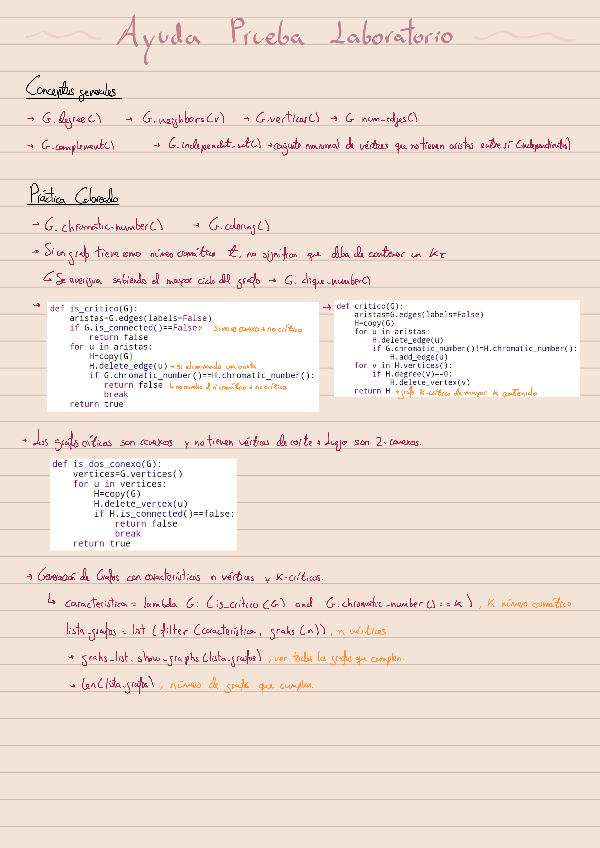 Ayuda Prueba Laboratorio
Conceptos generales
→ G.degree() → G.neighbors(v) → G.vertices() → G num_edges()
→ G.complement() → G.independent_set() → conjunto maximal de vértices que no tienen aristas entre sí (independientes)
Práctica Coloreado
→ G.chromatic_number() → G.coloring()
→ Si un grafo tiene como número cromático t, no significa que deba de contener un Kt
Se averigua sabiendo el mayor ciclo del grafo → G.clique_number()
→ def is_critico(G):
aristas=G.edges(labels=False)
if G.is_connected()==False: si no es conexo → no crítico
return false
for u in aristas:
H=copy(G)
H.delete_edge(u) → si eliminando una arista
if G.chromatic_number()==H.chromatic_number():
return false no cambia el nº cromático → no crítico
break
return true
→ def critico(G):
aristas=G.edges(labels=False)
H=copy(G)
for u in aristas:
H.delete_edge(u)
if G.chromatic_number()!=H.chromatic_number():
H.add_edge(u)
for v in H.vertices():
if H.degree(v)==0:
H.delete_vertex(v)
return H → grafo K-crítico de mayor K contenido
→ Los grafos críticos son conexos y no tienen vértices de corte → luego son 2-conexos.
def is_dos_conexo(G):
vertices=G.vertices()
for u in vertices:
H=copy(G)
H.delete_vertex(u)
if H.is_connected()==false:
return false
break
return true
→ Generación de Grafos con características n vértices y K-críticos.
↳ caracteristica = lambda G: (is_critico(G) and G.chromatic_number() == K) , K número cromático
lista_grafos = list (filter (caracteristica, graphs (n))) , n vértices
→ graphs_list. show_graphs (lista_grafos) , ver todos los grafos que cumplen.
→ len(lista_grafos) , número de grafos que cumplen.